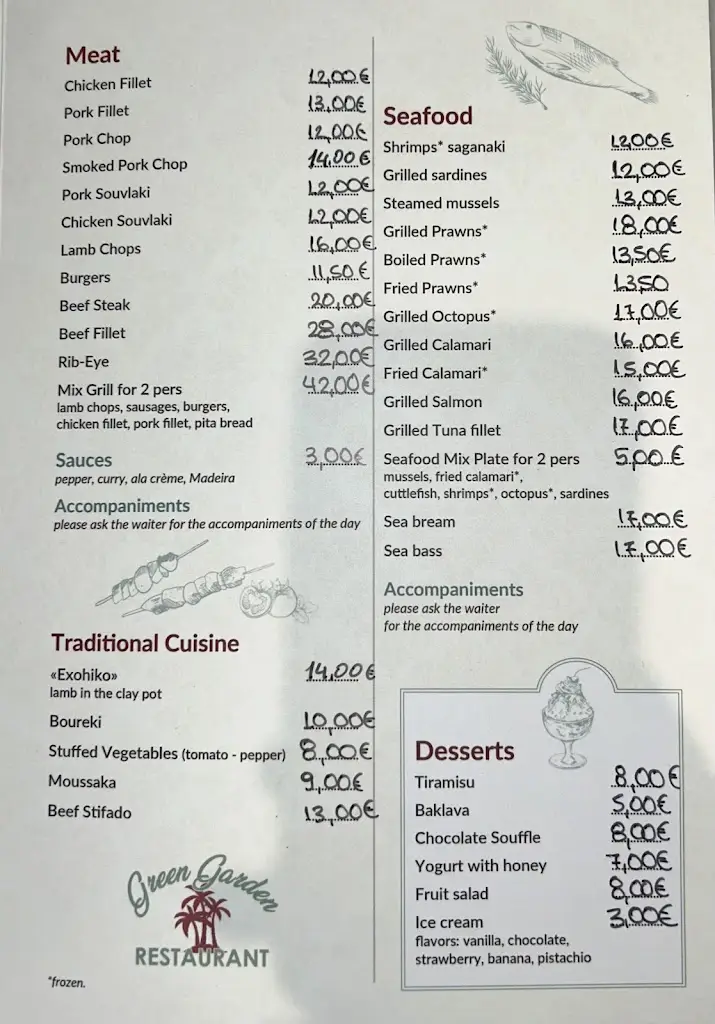 Meat
Chicken Fillet 12,00€
Pork Fillet 13,00€
Pork Chop 12,00€
Smoked Pork Chop 14,00€
Pork Souvlaki 12,00€
Chicken Souvlaki 12,00€
Lamb Chops 16,00€
Burgers 11,50€
Beef Steak 20,00€
Beef Fillet 28,00€
Rib-Eye 32,00€
Mix Grill for 2 pers 42,00€
lamb chops, sausages, burgers,
chicken fillet, pork fillet, pita bread
Sauces 3,00€
pepper, curry, ala crème, Madeira
Accompaniments
please ask the waiter for the accompaniments of the day
Traditional Cuisine
«Exohiko» 14,00€
lamb in the clay pot
Boureki 10,00€
Stuffed Vegetables (tomato - pepper) 8,00€
Moussaka 9,00€
Beef Stifado 13,00€
Green Garden
RESTAURANT
*frozen.
Seafood
Shrimps* saganaki 12,00€
Grilled sardines 12,00€
Steamed mussels 13,00€
Grilled Prawns* 18,00€
Boiled Prawns* 13,50€
Fried Prawns* 13,50
Grilled Octopus* 17,00€
Grilled Calamari 16,00€
Fried Calamari* 15,00€
Grilled Salmon 16,00€
Grilled Tuna fillet 17,00€
Seafood Mix Plate for 2 pers 5,00€
mussels, fried calamari*,
cuttlefish, shrimps*, octopus*, sardines
Sea bream 17,00€
Sea bass 17,00€
Accompaniments
please ask the waiter
for the accompaniments of the day
Desserts
Tiramisu 8,00€
Baklava 5,00€
Chocolate Souffle 8,00€
Yogurt with honey 7,00€
Fruit salad 8,00€
Ice cream 3,00€
flavors: vanilla, chocolate,
strawberry, banana, pistachio